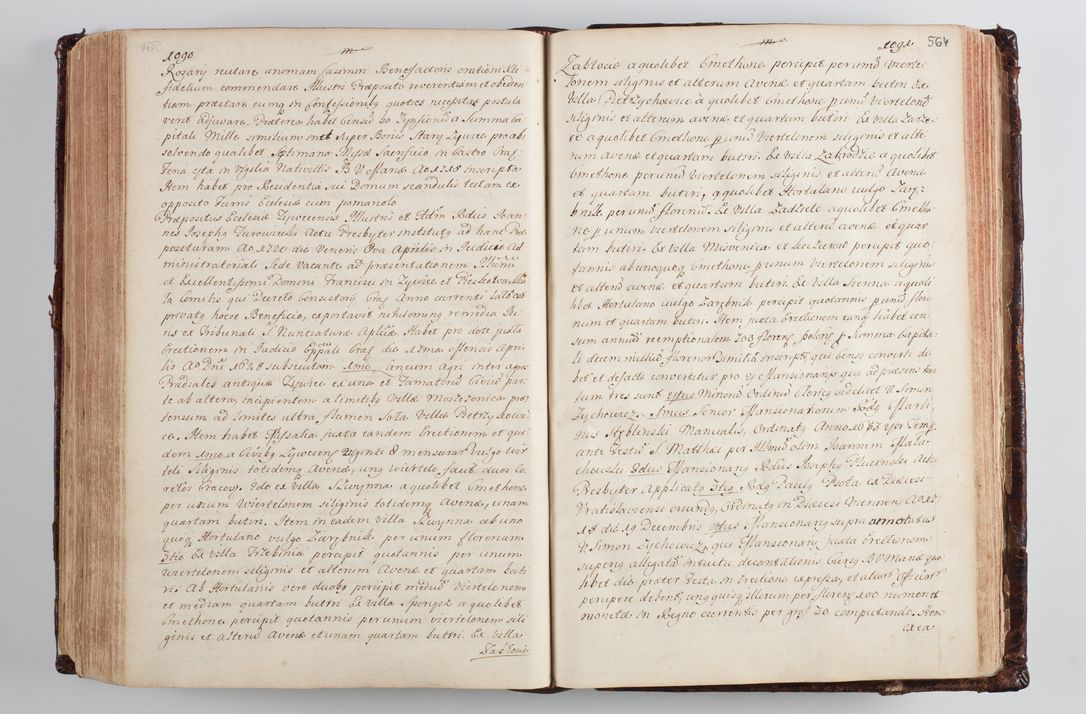 1090
Rosarii recitare unam Casimiri Benefactoris orationi Xti
fidelium commendare Illustri Præposito reverentiam et obedien
tiam præstare eumq in Confessionibus quoties necessitas postula
verit adjuvare. Præterea habet Censum a Summa Ca
pitali Mille similium super Bonis Stary Zywiec pro ab
solvendo qualibet Septimana Missæ Sacrificio in Castro
facta in Vigilia Nativitatis B V Mariæ Ao 1718 inscripta
Item habet pro Residentia sui Domum scandulis tectam ex
opposito Turris Ecclesiæ cum pomario
Præpositus Ecclesiæ Zywecensis Illustris et Adm Rdus Joan
nes Josephus Turowicius Actu Presbyter institutus ad hanc Præ
posituram Ao 1720 die Veneris Aprilis in Judicio Ad
ministratoriali Sede Vacante ad præsentationem Illmi
et Excellentissimi Domini Francisci in Zywiec et Pieskowaskała
Comitis qui Decreto Consistorii Anno currenti
privatus hocce Beneficio, exportavit nihilominus remedia Ju
ris ex Tribunali Nuntiaturæ Aplicæ Habet pro dote juxta
Erectionem in Judicio Eppali die 17ma Mensis Apri
lis Ao Dni 1628 subsecutam 1mo aream Agri inter agros
Prædiales antiquæ Zywiec ex una et Famatinū Civiū par
te ab altera, incipientem a limitibus Villæ Moszczenica pro
tensum ad limites ultra flumen Sola Villæ Pietrzykowi
ce. Item habet Missalia juxta eandem Erectionem et qui
dem 1mo a Civibus Zywecensibus Viginti mensuras vulgo wier
teli Siliginis totidemq Avenæ, unq wiertele facit duos Co
retos Cracov. 2do ex Villa Zwynna a quolibet Cmethone
per unum Wiertelonem siliginis totidemq Avenæ, unam
quartam butiri. Item in eadem Villa Zwynna ab uno
quoq Hortulano vulgo Zarębnik per unum florenum
3tio Ex Villa Trzebinia percipit quotannis per unum
wiertelonem siliginis et alterum Avenæ et quartam buti
ri. Ab Hortulanis vero duobus percipit mediū Viertelonem
et mediam quartam butiri Ex Villa a quolibet
Cmethone percipit quotannis per unum viertelonem sili
ginis et alterū Avenæ et unam quartam butiri Ex Villa
Zabłocie
564
1091
Zabłocie a quolibet Cmethone percipit per unū Vierte
lonem siliginis et alterum Avenæ et quartam butiri Ex
Villa Pietrzykowice a quolibet Cmethone p unū Viertelonē
siliginis et alterum avenæ et quartam butiri Ex Villa Zarze
cze a quolibet Cmethone p unū Viertelonem siliginis et alte
rum avenæ et quartam butiri. Ex Villa Zakrodzie a quolibet
Cmethone per unū Viertelonem siliginis et alterū Avenæ
et quartam butiri, a quolibet Hortulano vulgo Zarę
bnik per unū florenū. Ex Villa Zadziele a quolibet Cmetho
ne p unum Viertelonem siliginis et alterū avenæ et quar
tam butiri Ex Villa Moszczenica et percipit quo
tannis ab unoquoq Cmethone p unum Viertelonem siliginis
et alterū avenæ et quartam butiri Ex Villa Sienna a quoli
bet Hortulano vulgo Zarębnik percipit quotannis p unū flore
num et quartam butiri. Item juxta Erectionem eandē habet cen
sum annuū reemptionalem 700 florenos polonos a Summa Capita
li decem millium florenorū similiū inscriptū, qui census converti de
bet et de facto convertitur pro 7 Mansionariis qui ad præsens tan
tum tres sunt 4tus Minorū Ordinū Clericus videlicet V. Simon
Zychowicz. 1mus Senior Mansionariorum Rdus Marti
nus Stebliński Manualis, Ordinatus Anno 1683 ipso
ante Festū S Matthæi per Illmū olim Joannem Mała
chowski 2dus Mansionarius Rdus Josephus Plucinski Actu
Presbyter Applicatus 3tius Rdus Paulus Psota ex Diæcesi
Vratislaviensi oriundus, Ordinatus in Diæcesi Viennen. Ao 17
18 die 19 Decembris 4tus Mansionarius supra annotatus
V. Simon Zychowicz, qui Mansionarii juxta Erectionem
superius allegatam intuitu decantationis Cursus B V Mariæ quo
libet die præter Festa in Erectione expressa, et aliorū Officiorū
percipere debent, unusquisq illorum per florenos 100 numeri et
monetæ in Regno currentis per grossos 30 computando. Item